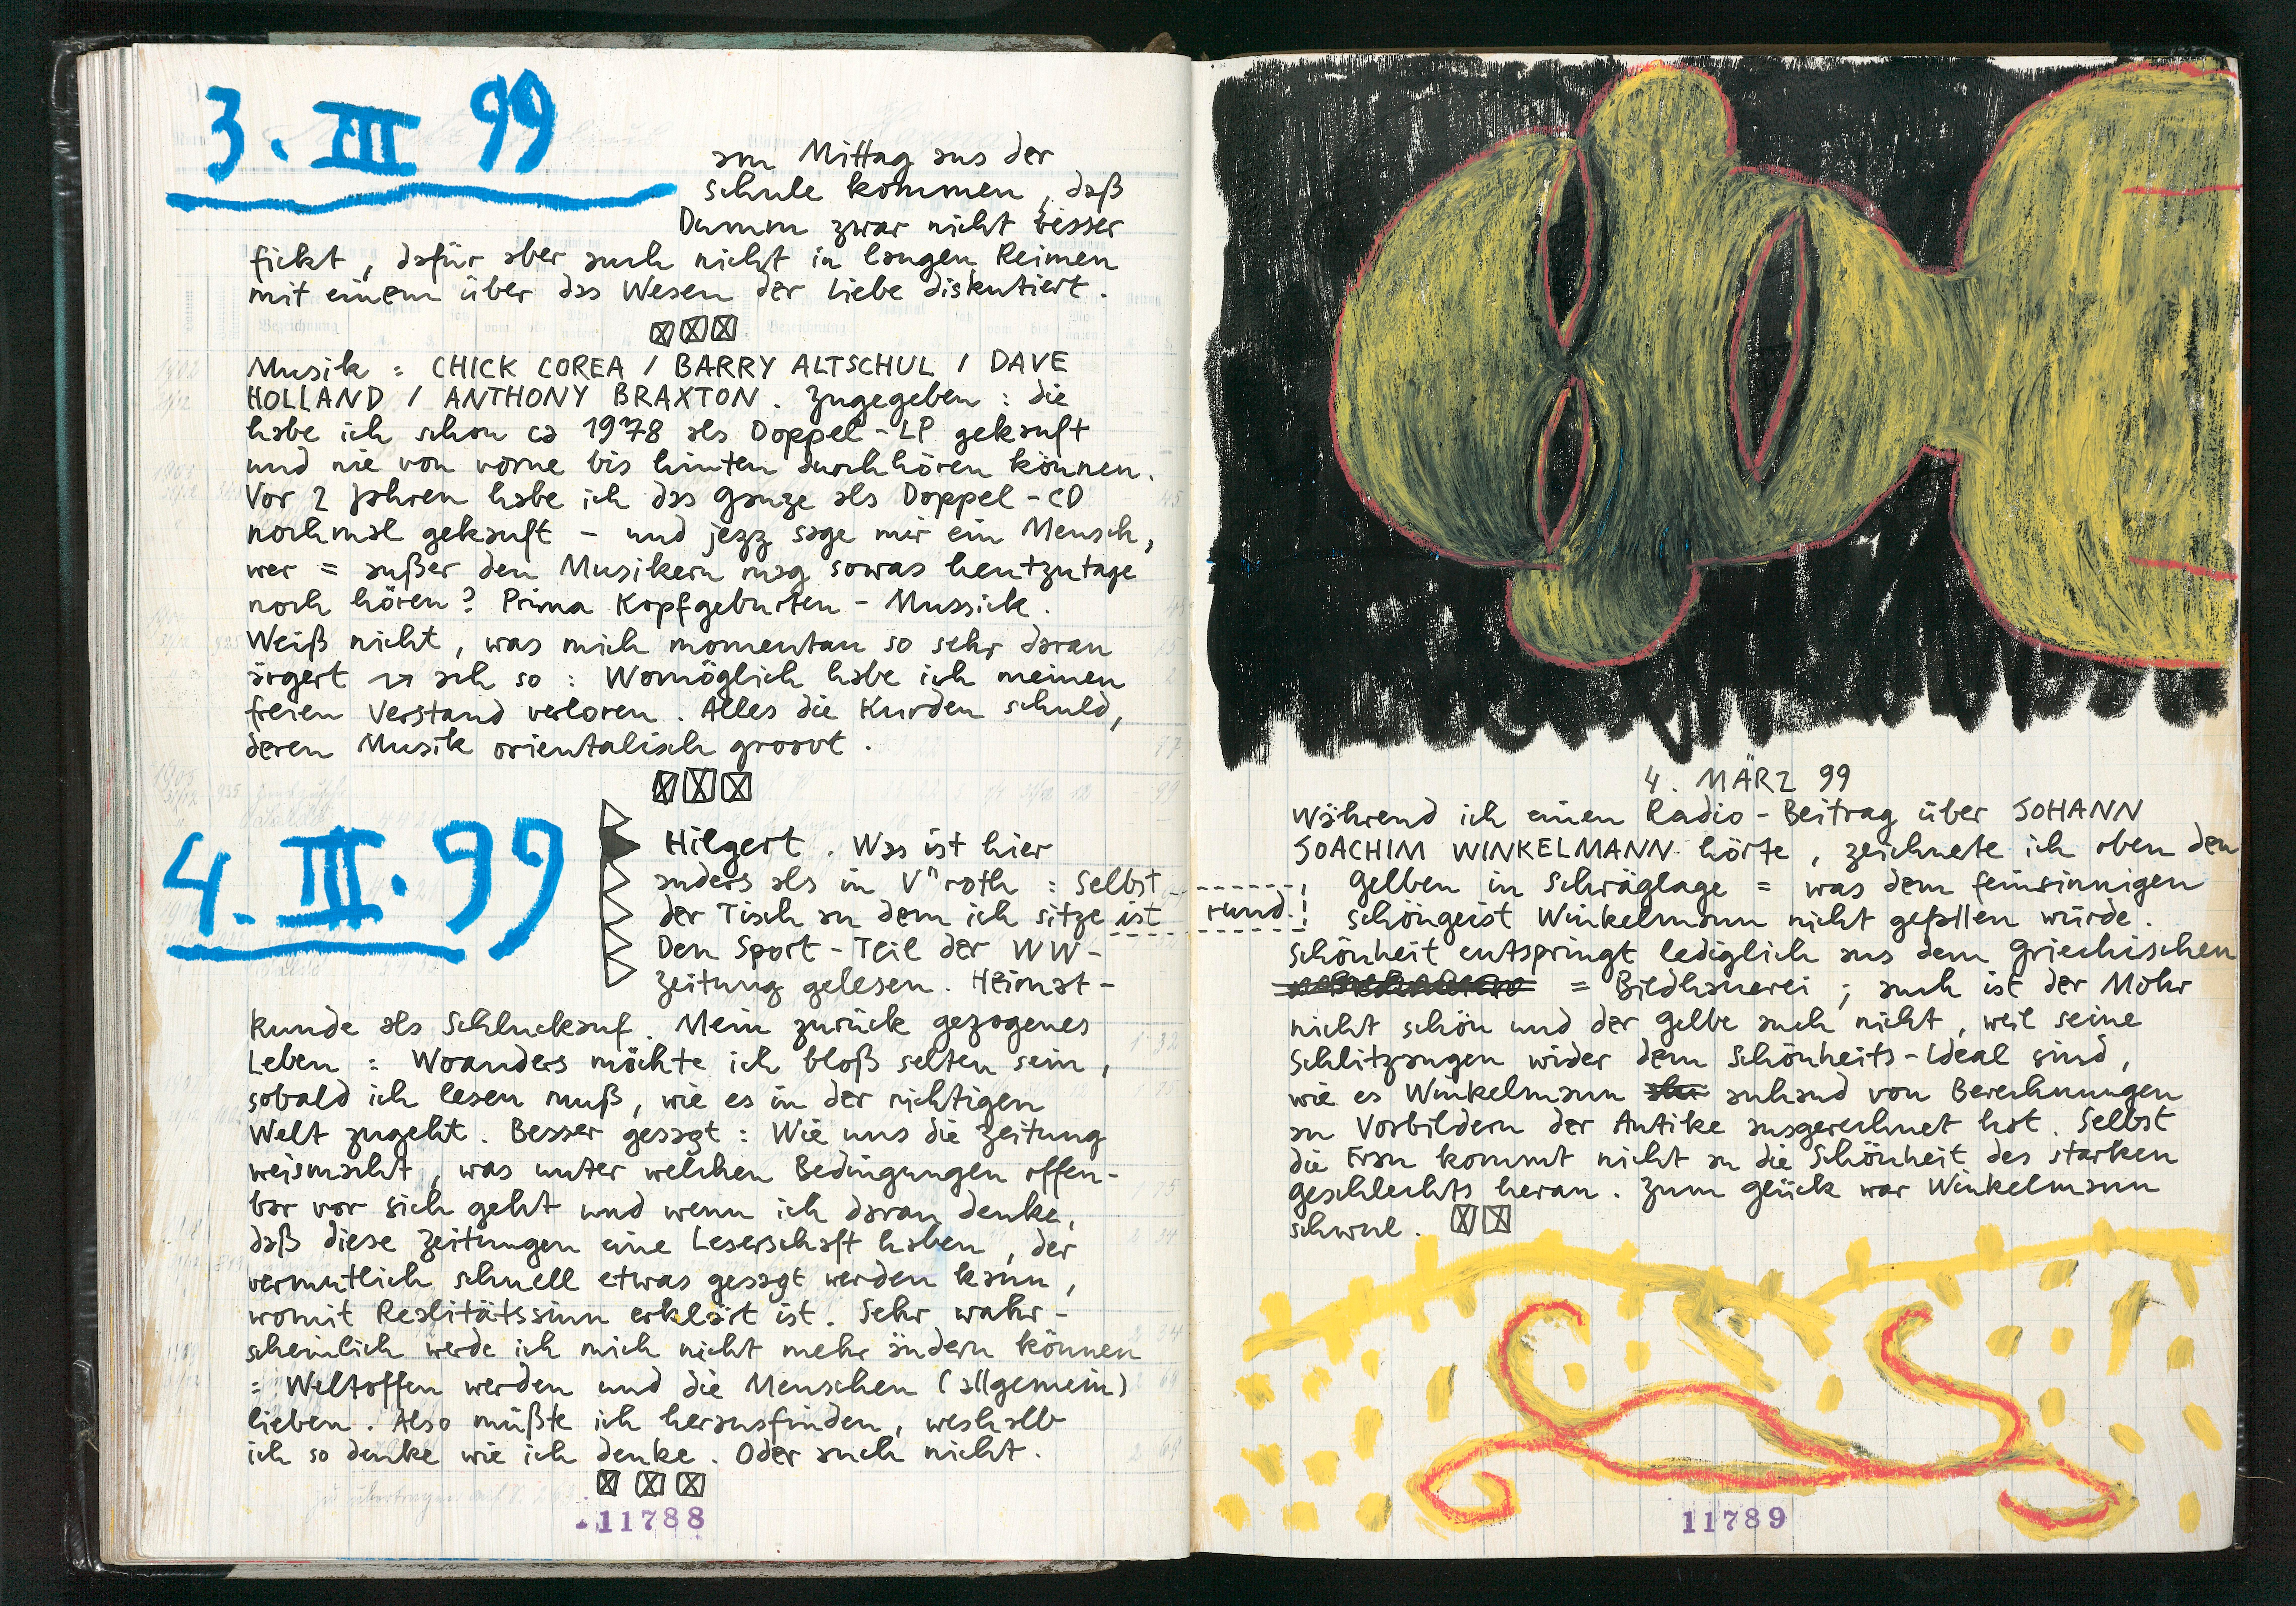 3. III 99
am Mittag aus der
Schule kommen, daß
Dumm zwar nicht besser
fickt, dafür aber auch nicht in langen Reimen
mit einem über das Wesen der Liebe diskutiert.
Musik : CHICK COREA / BARRY ALTSCHUL / DAVE
HOLLAND / ANTHONY BRAXTON. Zugegeben : die
habe ich schon ca 1978 als Doppel-LP gekauft
und nie von vorne bis hinten durchhören können.
Vor 2 Jahren habe ich das Ganze als Doppel-CD
nochmal gekauft - und jezz sage mir ein Mensch,
wer = außer den Musikern mag sowas heutzutage
noch hören? Prima Kopfgeburten-Mussick.
Weiß nicht, was mich momentan so sehr daran
ärgert → ach so : Womöglich habe ich meinen
freien Verstand verloren. Alles die Kurden schuld,
deren Musik orientalisch groovt.
4. III. 99
Hilgert. Was ist hier
anders als in V"roth : Selbst
der Tisch an dem ich sitze ist rund.!
Den Sport-Teil der WW-
Zeitung gelesen. Heimat-
kunde als Schluckauf. Mein zurück gezogenes
Leben : Woanders möchte ich bloß selten sein,
sobald ich lesen muß, wie es in der richtigen
Welt zugeht. Besser gesagt : Wie uns die Zeitung
weismacht, was unter welchen Bedingungen offen-
bar vor sich geht und wenn ich daran denke,
daß diese Zeitungen eine Leserschaft haben, der
vermutlich schnell etwas gesagt werden kann,
womit Realitätssinn erklärt ist. Sehr wahr-
scheinlich werde ich mich nicht mehr ändern können
= Weltoffen werden und die Menschen (allgemein)
lieben. Also müßte ich herausfinden, weshalb
ich so denke wie ich denke. Oder auch nicht.
11788
4. MÄRZ 99
Während ich einen Radio-Beitrag über JOHANN
JOACHIM WINKELMANN hörte, zeichnete ich oben den
Gelben in Schräglage = was dem feinsinnigen
Schöngeist Winkelmann nicht gefallen würde.
Schönheit entspringt lediglich aus dem Griechischen
= Bildhauerei ; auch ist der Mohr
nicht schön und der Gelbe auch nicht, weil seine
Schlitzaugen wider dem Schönheits-Ideal sind,
wie es Winkelmann anhand von Berechnungen
an Vorbildern der Antike ausgerechnet hat. Selbst
die Frau kommt nicht an die Schönheit des starken
Geschlechts heran. Zum Glück war Winkelmann
schwul.
11789